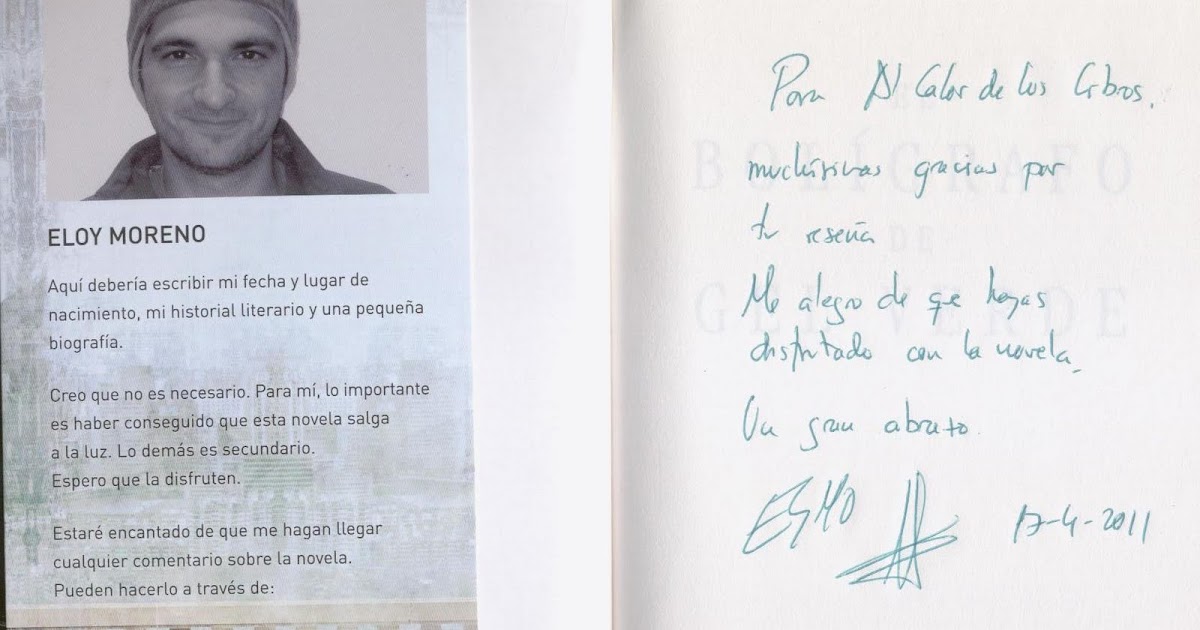 ELOY MORENO
Aquí debería escribir mi fecha y lugar de
nacimiento, mi historial literario y una pequeña
biografía.
Creo que no es necesario. Para mí, lo importante
es haber conseguido que esta novela salga
a la luz. Lo demás es secundario.
Espero que la disfruten.
Estaré encantado de que me hagan llegar
cualquier comentario sobre la novela.
Pueden hacerlo a través de:
Para Al Calor de los Libros.
muchísimas gracias por
tu reseña
Me alegro de que hayas
disfrutado con la novela.
Un gran abrazo.
17-4-2011
BOLÍGRAFO
DE
GEL VERDE